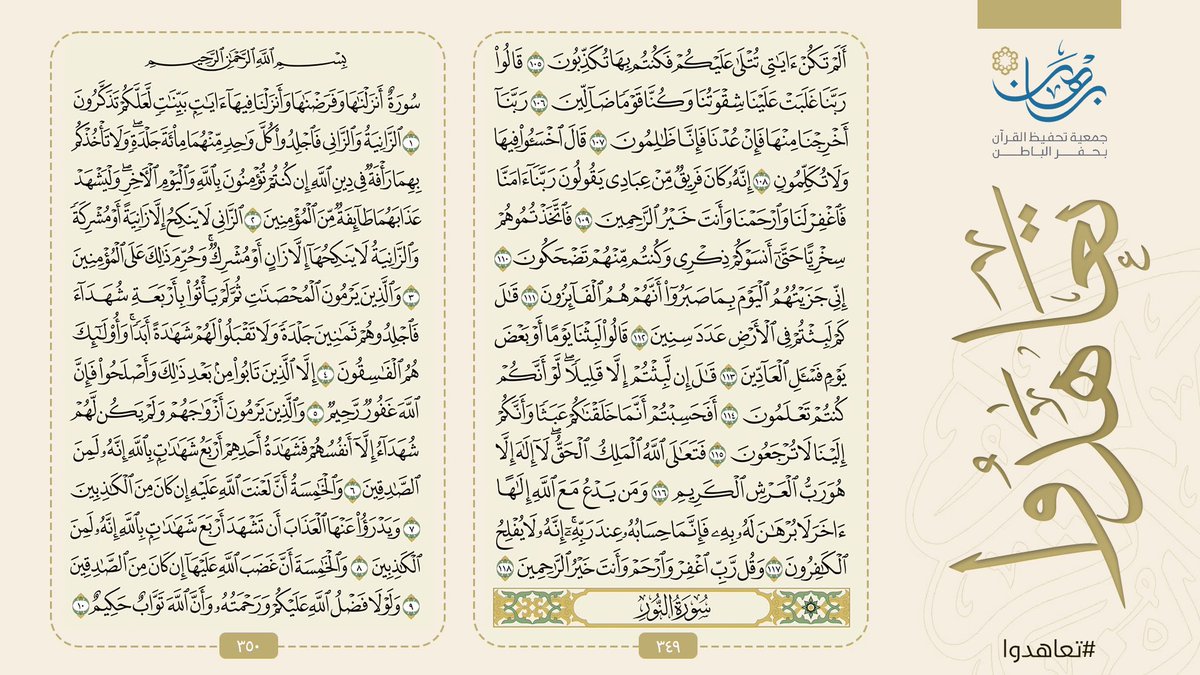 أَلَمْ تَكُنْ ءَايَٰتِي تُتْلَىٰ عَلَيْكُمْ فَكُنتُم بِهَا تُكَذِّبُونَ ١٠٥ قَالُوا۟
رَبَّنَا غَلَبَتْ عَلَيْنَا شِقْوَتُنَا وَكُنَّا قَوْمًا ضَآلِّينَ ١٠٦ رَبَّنَآ
أَخْرِجْنَا مِنْهَا فَإِنْ عُدْنَا فَإِنَّا ظَٰلِمُونَ ١٠٧ قَالَ ٱخْسَـُٔوا۟ فِيهَا
وَلَا تُكَلِّمُونِ ١٠٨ إِنَّهُۥ كَانَ فَرِيقٌ مِّنْ عِبَادِي يَقُولُونَ رَبَّنَآ ءَامَنَّا
فَٱغْفِرْ لَنَا وَٱرْحَمْنَا وَأَنتَ خَيْرُ ٱلرَّٰحِمِينَ ١٠٩ فَٱتَّخَذْتُمُوهُمْ
سِخْرِيًّا حَتَّىٰٓ أَنسَوْكُمْ ذِكْرِي وَكُنتُم مِّنْهُمْ تَضْحَكُونَ ١١٠
إِنِّي جَزَيْتُهُمُ ٱلْيَوْمَ بِمَا صَبَرُوٓا۟ أَنَّهُمْ هُمُ ٱلْفَآئِزُونَ ١١١ قَٰلَ
كَمْ لَبِثْتُمْ فِي ٱلْأَرْضِ عَدَدَ سِنِينَ ١١٢ قَالُوا۟ لَبِثْنَا يَوْمًا أَوْ بَعْضَ
يَوْمٍ فَسْـَٔلِ ٱلْعَآدِّينَ ١١٣ قَٰلَ إِن لَّبِثْتُمْ إِلَّا قَلِيلًا ۖ لَّوْ أَنَّكُمْ
كُنتُمْ تَعْلَمُونَ ١١٤ أَفَحَسِبْتُمْ أَنَّمَا خَلَقْنَٰكُمْ عَبَثًا وَأَنَّكُمْ
إِلَيْنَا لَا تُرْجَعُونَ ١١٥ فَتَعَٰلَى ٱللَّهُ ٱلْمَلِكُ ٱلْحَقُّ ۖ لَآ إِلَٰهَ إِلَّا
هُوَ رَبُّ ٱلْعَرْشِ ٱلْكَرِيمِ ١١٦ وَمَن يَدْعُ مَعَ ٱللَّهِ إِلَٰهًا
ءَاخَرَ لَا بُرْهَٰنَ لَهُۥ بِهِۦ فَإِنَّمَا حِسَابُهُۥ عِندَ رَبِّهِۦٓ ۚ إِنَّهُۥ لَا يُفْلِحُ
ٱلْكَٰفِرُونَ ١١٧ وَقُل رَّبِّ ٱغْفِرْ وَٱرْحَمْ وَأَنتَ خَيْرُ ٱلرَّٰحِمِينَ ١١٨
سُورَةُ النُّورِ
٣٤٩
بِسْمِ ٱللَّهِ ٱلرَّحْمَٰنِ ٱلرَّحِيمِ
سُورَةٌ أَنزَلْنَٰهَا وَفَرَضْنَٰهَا وَأَنزَلْنَا فِيهَآ ءَايَٰتٍۭ بَيِّنَٰتٍ لَّعَلَّكُمْ تَذَكَّرُونَ
١ ٱلزَّانِيَةُ وَٱلزَّانِي فَٱجْلِدُوا۟ كُلَّ وَٰحِدٍ مِّنْهُمَا مِا۟ئَةَ جَلْدَةٍ ۖ وَلَا تَأْخُذْكُم
بِهِمَا رَأْفَةٌ فِي دِينِ ٱللَّهِ إِن كُنتُمْ تُؤْمِنُونَ بِٱللَّهِ وَٱلْيَوْمِ ٱلْـَٔاخِرِ ۖ وَلْيَشْهَدْ
عَذَابَهُمَا طَآئِفَةٌ مِّنَ ٱلْمُؤْمِنِينَ ٢ ٱلزَّانِي لَا يَنكِحُ إِلَّا زَانِيَةً أَوْ مُشْرِكَةً
وَٱلزَّانِيَةُ لَا يَنكِحُهَآ إِلَّا زَانٍ أَوْ مُشْرِكٌ ۚ وَحُرِّمَ ذَٰلِكَ عَلَى ٱلْمُؤْمِنِينَ
٣ وَٱلَّذِينَ يَرْمُونَ ٱلْمُحْصَنَٰتِ ثُمَّ لَمْ يَأْتُوا۟ بِأَرْبَعَةِ شُهَدَآءَ
فَٱجْلِدُوهُمْ ثَمَٰنِينَ جَلْدَةً وَلَا تَقْبَلُوا۟ لَهُمْ شَهَٰدَةً أَبَدًا ۚ وَأُو۟لَٰٓئِكَ
هُمُ ٱلْفَٰسِقُونَ ٤ إِلَّا ٱلَّذِينَ تَابُوا۟ مِنۢ بَعْدِ ذَٰلِكَ وَأَصْلَحُوا۟ فَإِنَّ
ٱللَّهَ غَفُورٌ رَّحِيمٌ ٥ وَٱلَّذِينَ يَرْمُونَ أَزْوَٰجَهُمْ وَلَمْ يَكُن لَّهُمْ
شُهَدَآءُ إِلَّآ أَنفُسُهُمْ فَشَهَٰدَةُ أَحَدِهِمْ أَرْبَعُ شَهَٰدَٰتٍۭ بِٱللَّهِ إِنَّهُۥ لَمِنَ
ٱلصَّٰدِقِينَ ٦ وَٱلْخَٰمِسَةُ أَنَّ لَعْنَتَ ٱللَّهِ عَلَيْهِ إِن كَانَ مِنَ ٱلْكَٰذِبِينَ
٧ وَيَدْرَؤُا۟ عَنْهَا ٱلْعَذَابَ أَن تَشْهَدَ أَرْبَعَ شَهَٰدَٰتٍۭ بِٱللَّهِ إِنَّهُۥ لَمِنَ
ٱلْكَٰذِبِينَ ٨ وَٱلْخَٰمِسَةَ أَنَّ غَضَبَ ٱللَّهِ عَلَيْهَآ إِن كَانَ مِنَ ٱلصَّٰدِقِينَ
٩ وَلَوْلَا فَضْلُ ٱللَّهِ عَلَيْكُمْ وَرَحْمَتُهُۥ وَأَنَّ ٱللَّهَ تَوَّابٌ حَكِيمٌ ١٠
٣٥٠
برهان
جمعية تحفيظ القرآن
بحفر الباطن
تعاهدوا
#تعاهدوا